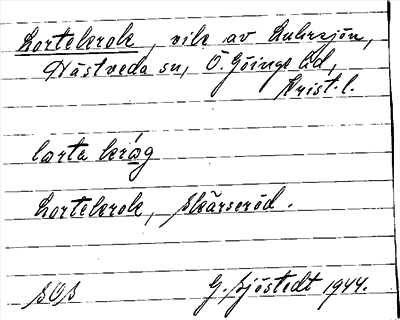 Lortekrok, vik av Luhrsjön,
Nästveda sn, Ö. Göinge hd,
Krist. l.
lorta kråg
Lortekrok, Skärseröd.
SOS G. Sjöstedt 1944.